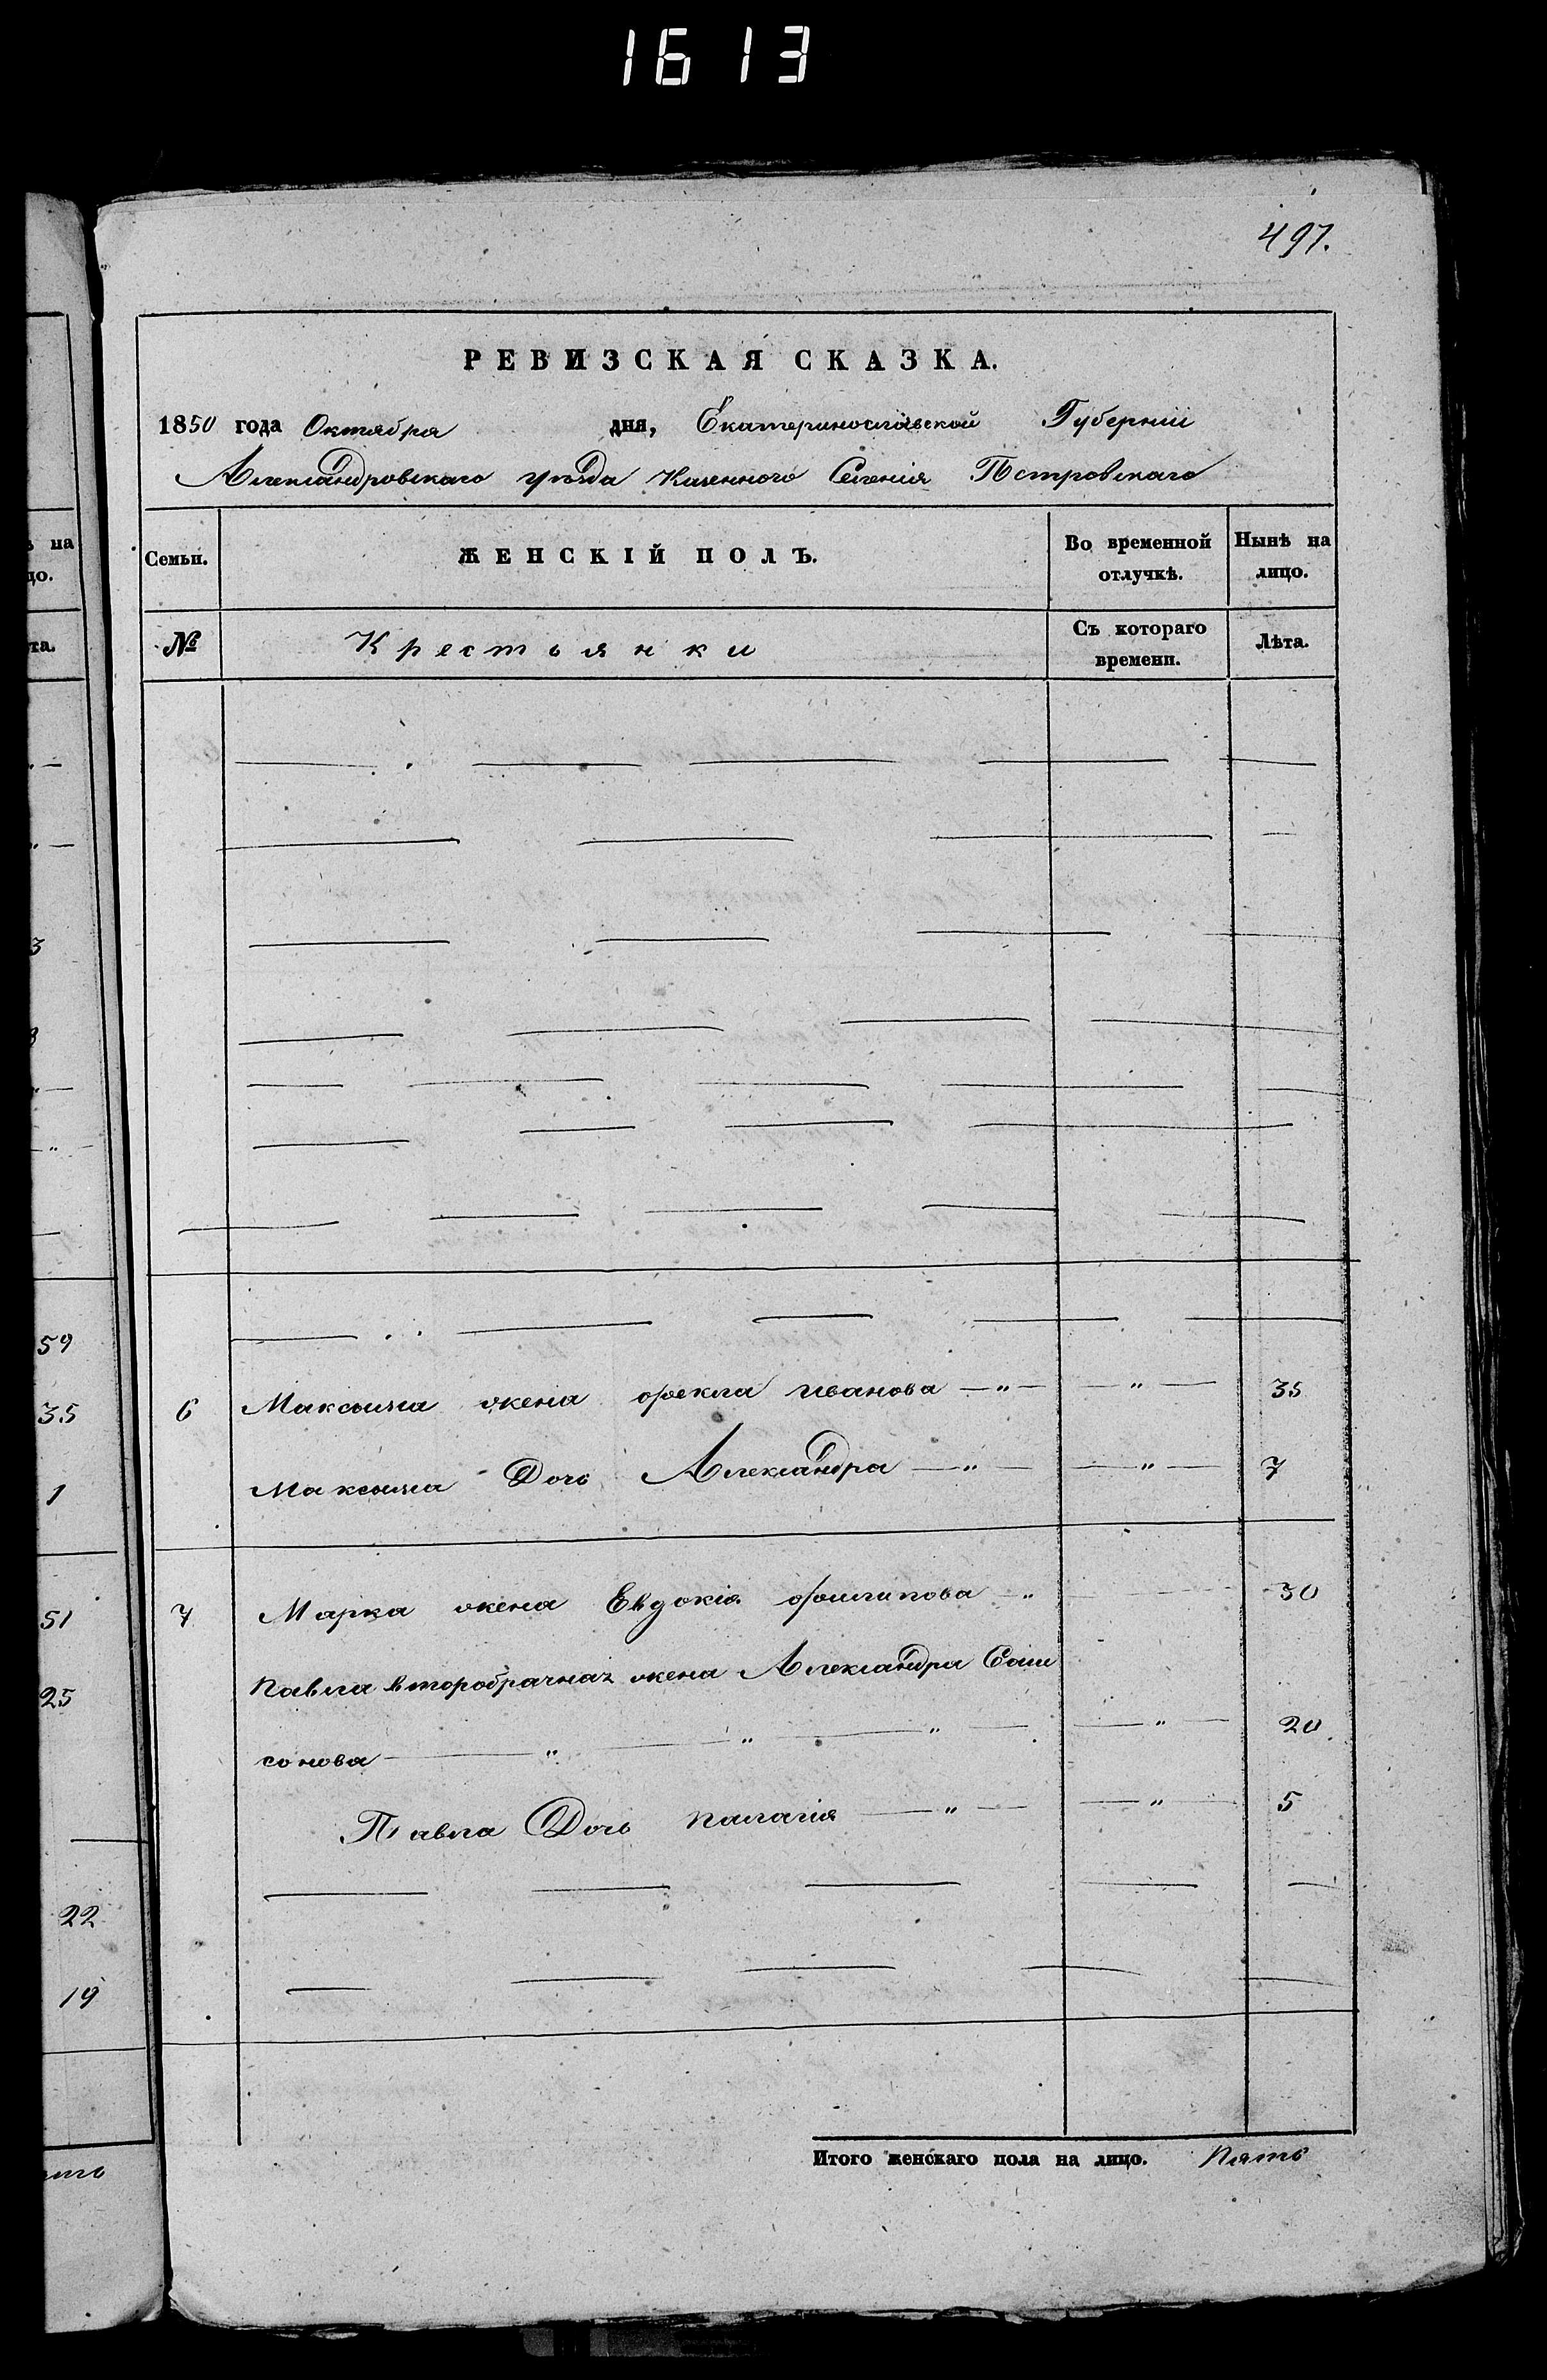 1613
497.
РЕВИЗСКАЯ СКАЗКА.
1850 года Октября дня, Екатеринославской Губернии
Александровскаго уѣзда Казенного Селения Петровскаго
Семьи. ЖЕНСКІЙ ПОЛЪ. Во временной отлучкѣ. Нынѣ на лицо.
№ Крестьянки Съ котораго времени. Лѣта.
6 Максима жена Фекла Иванова —„— —„— 35
Максима Дочь Александра —„— —„— 7
7 Марка жена Евдокія Филипова —„ 30
Павла второбрачная жена Александра Сам
сонова — „ — „ — „ — — „ — 20
Павла Дочь Палагія — „ — — „ — 5
Итого женскаго пола на лицо. Пять
ѣ на
цо.
та.
3
8
59
35
1
51
25
22
19